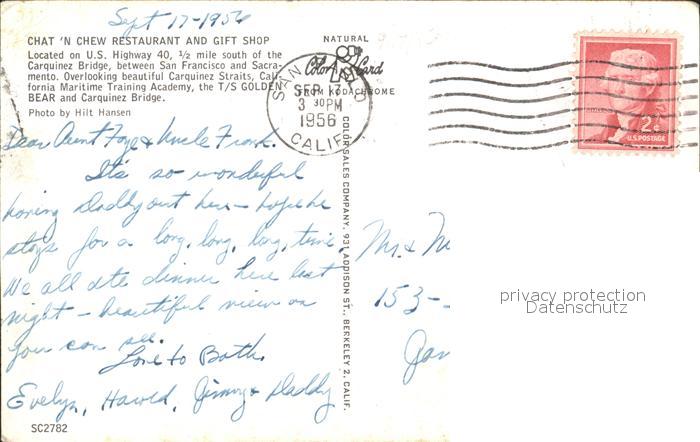 Sept 17-1956
CHAT 'N CHEW RESTAURANT AND GIFT SHOP
Located on U.S. Highway 40, ½ mile south of the
Carquinez Bridge, between San Francisco and Sacra-
mento. Overlooking beautiful Carquinez Straits, Cali-
fornia Maritime Training Academy, the T/S GOLDEN
BEAR and Carquinez Bridge.
Photo by Hilt Hansen
Dear Aunt Faye & Uncle Frank.
It's so wonderful
having Daddy out here - hope he
stays for a long, long, long, time.
We all ate dinner here last
night - beautiful view as
you can see.
Love to Both.
Evelyn, Harold, Jimmy & Daddy
SC2782
NATURAL
Color Card
FROM KODACHROME
SAN
SEP 17
3 30PM
1956
CALIF
COLOR SALES COMPANY, 931 ADDISON ST., BERKELEY 2, CALIF.
2¢
U.S. POSTAGE
Mr. &
153-
privacy protection
Datenschutz